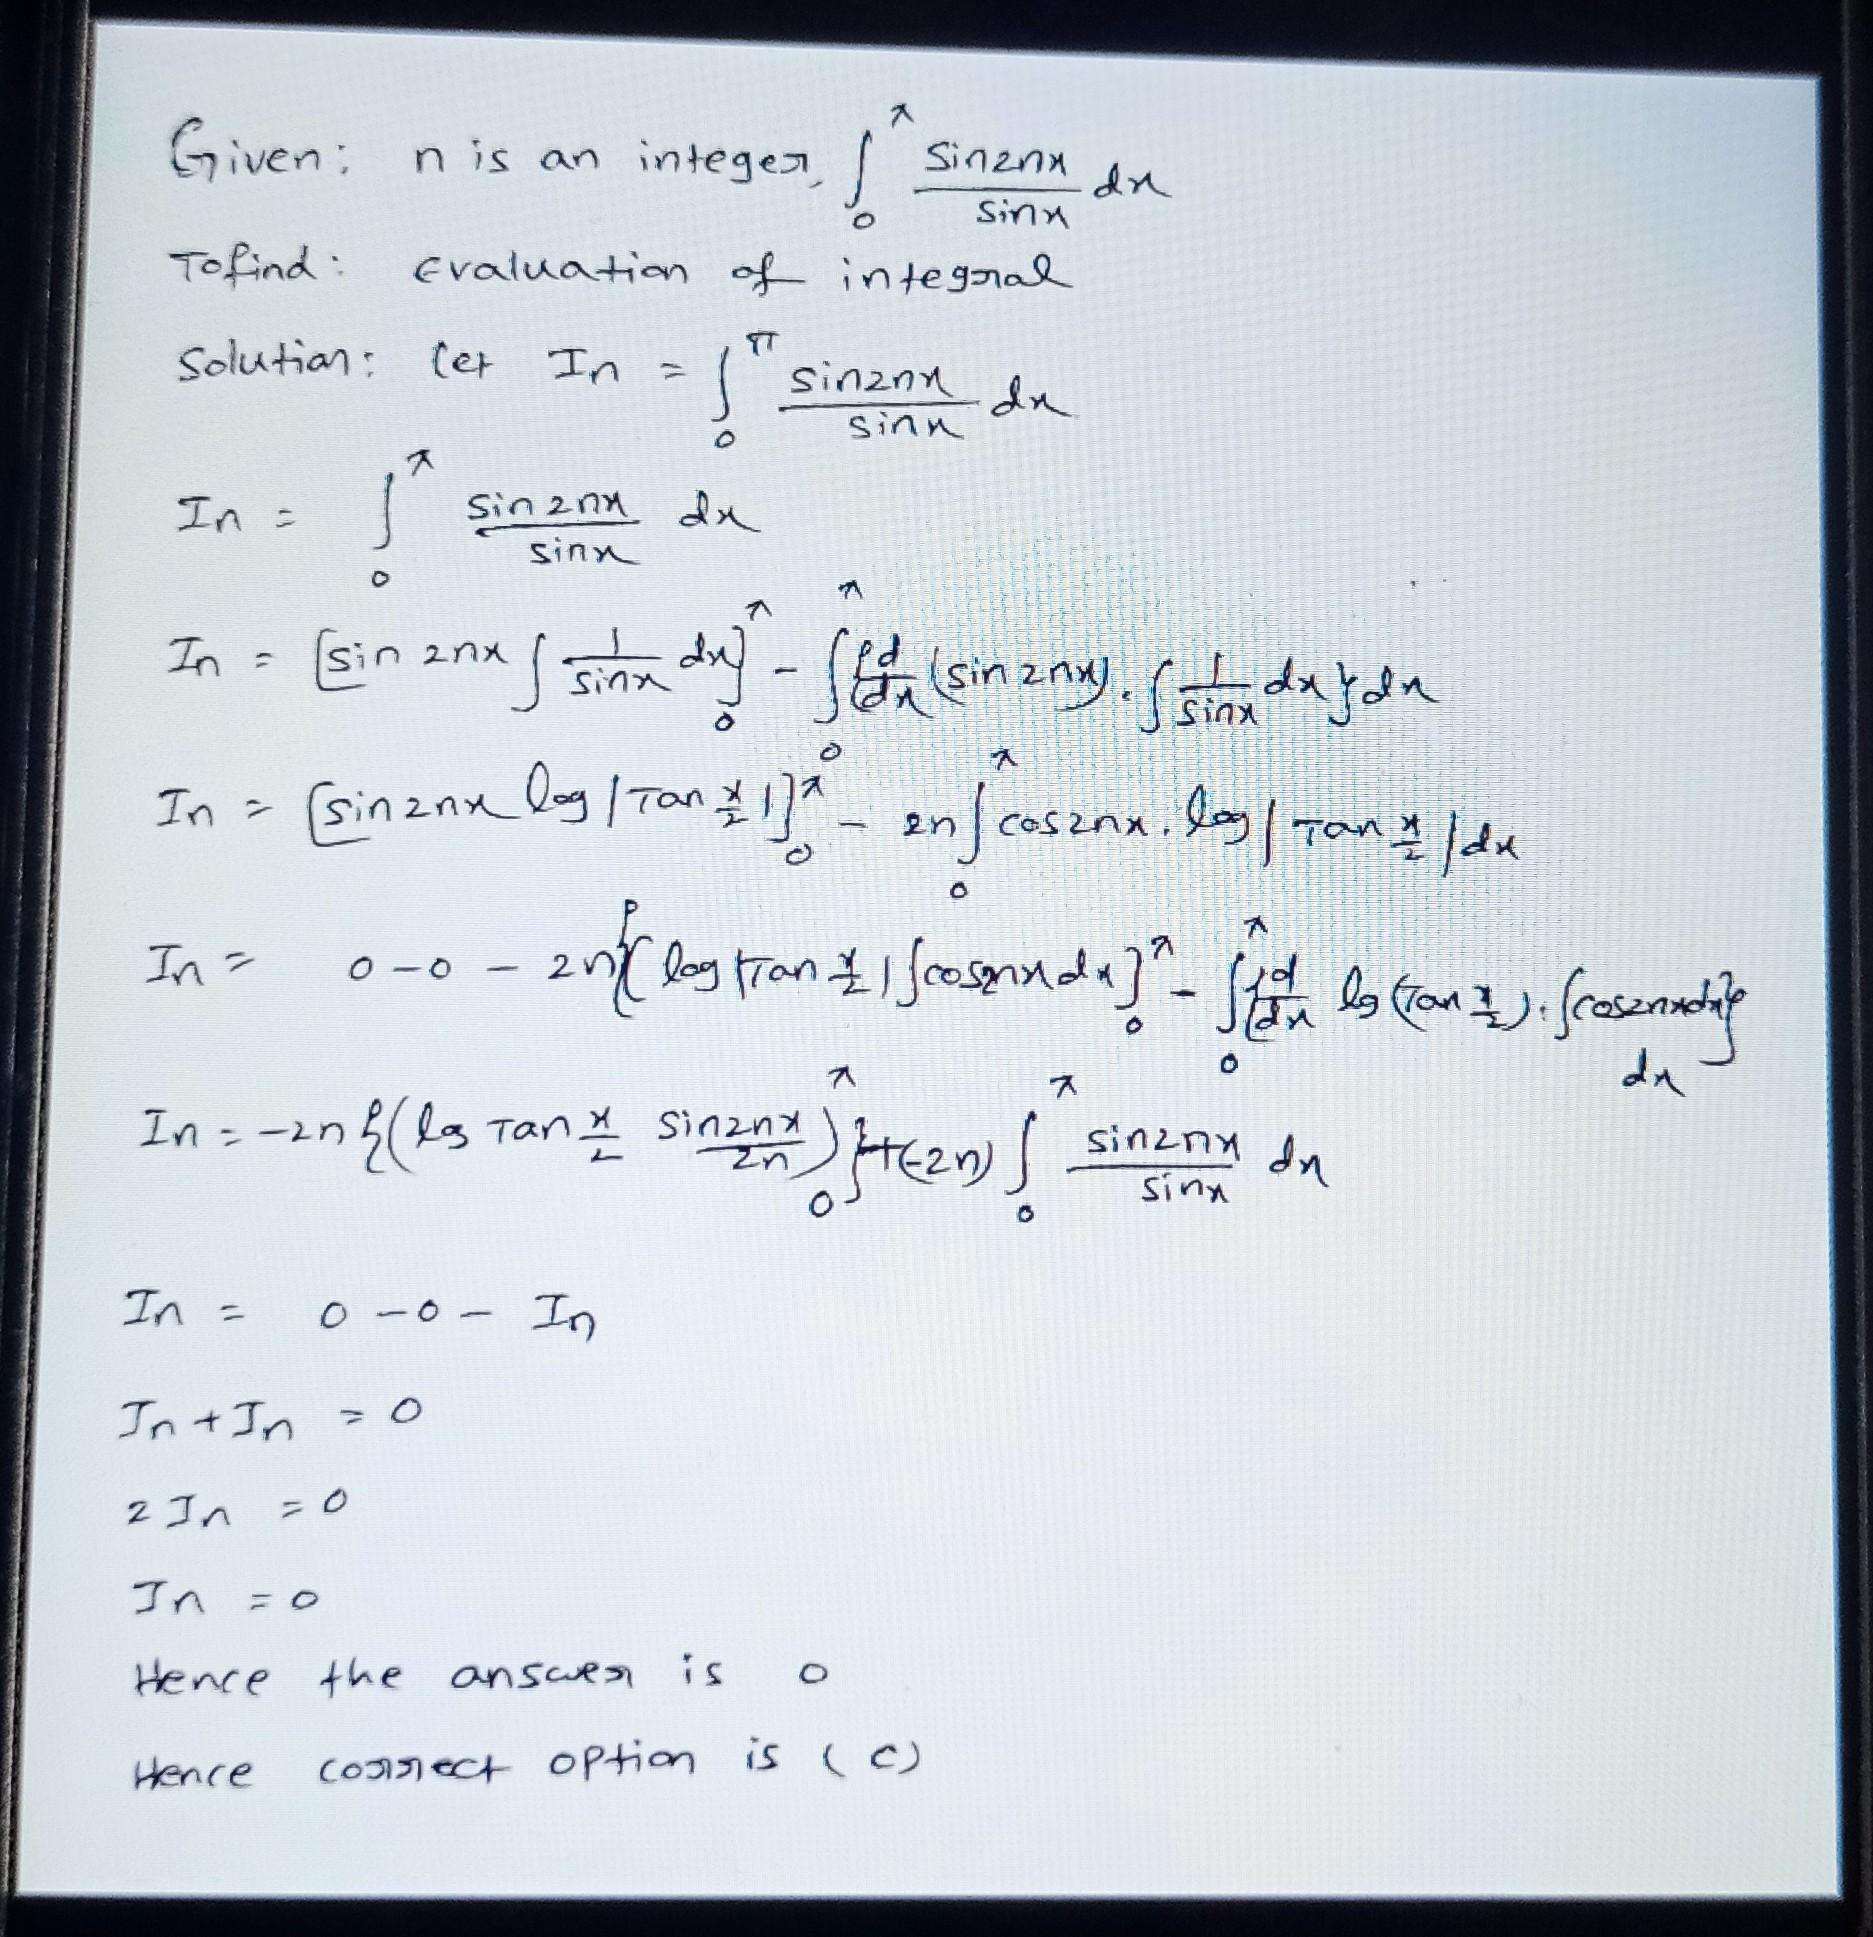 Given: n is an integer, ∫₀^π sin2nx/sinx dx
Tofind: Evaluation of integral
Solution: let In = ∫₀^π sin2nx/sinx dx
In = ∫₀^π sin2nx/sinx dx
In = [sin 2nx ∫ 1/sinx dx]₀^π - ∫₀^π {d/dx (sin2nx). ∫ 1/sinx dx} dx
In = [sin2nx log |Tan x/2|]₀^π - 2n ∫₀^π cos2nx. log |Tan x/2| dx
In = 0-0 - 2n{[log |Tan x/2| ∫cos2nx dx]₀^π - ∫₀^π {d/dx log (Tan x/2). ∫cos2nxdx} dx
In = -2n {(log Tan x/2 sin2nx/2n)₀^π} + (-2n) ∫₀^π sin2nx/sinx dx
In = 0-0- In
In + In = 0
2 In = 0
In = 0
Hence the answer is 0
Hence correct option is (C)